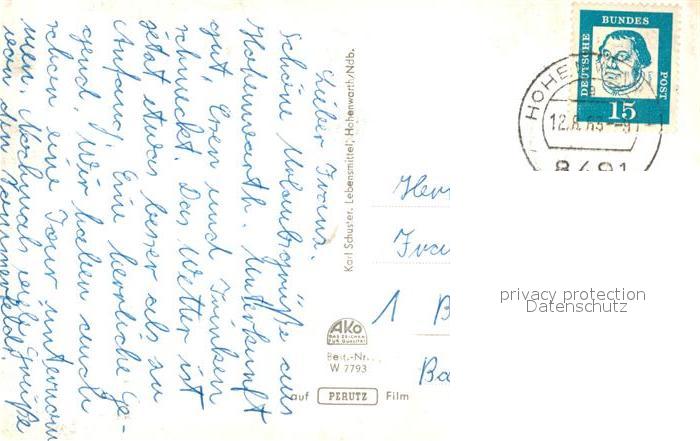 Lieber Franz.
Schöne Urlaubsgrüße aus
Hohenwarth. Unterkunft
gut, Essen und Trinken
schmeckt. Das Wetter ist
jetzt etwas besser als zu
Anfang. Eine herrliche Ge-
gend. Wir haben auch
schon eine Tour unternom
men. Nochmals viele Grüße
von den
Karl Schuster, Lebensmittel, Hohenwarth/Ndb.
DEUTSCHE
BUNDES
POST
15
HOHEN
12.8.63--9
8491
Her
Fra
1 B
Ba
AKO
DAS ZEICHEN
FÜR QUALITÄT
Best.-Nr.
W 7793
auf PERUTZ Film
privacy protection
Datenschutz